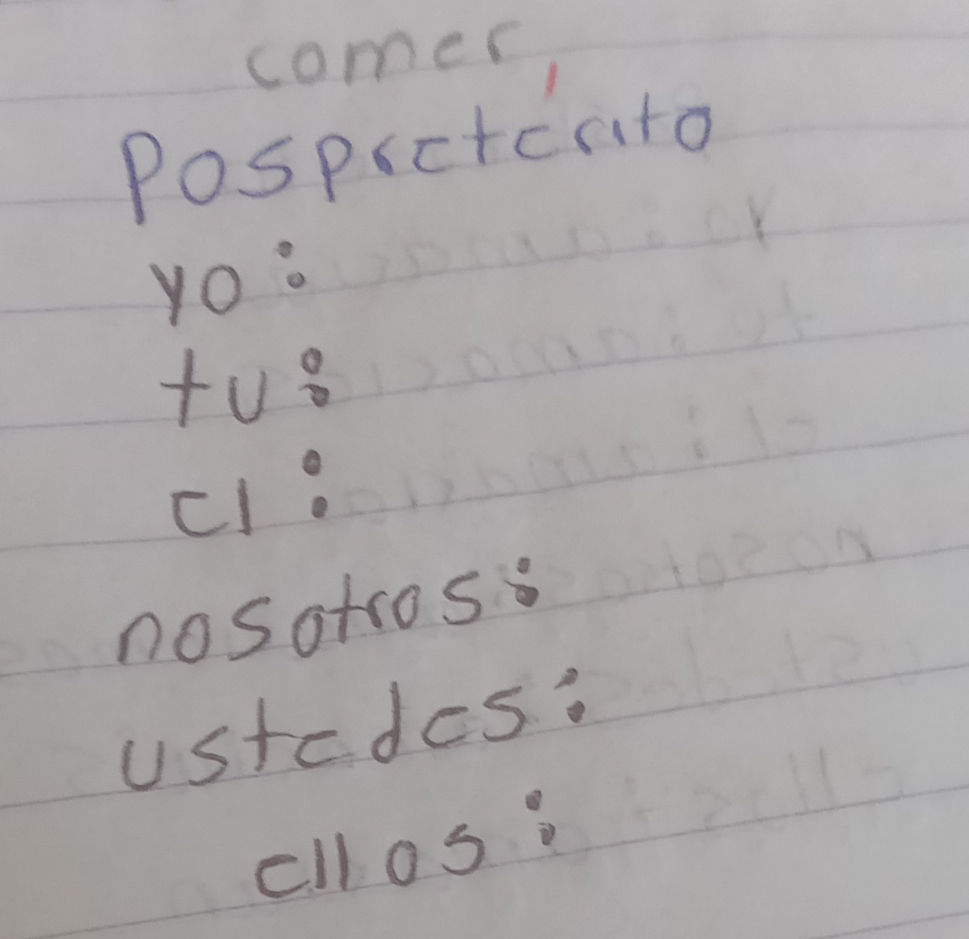 comer
Pospretérito
yo:
tu:
el:
nosotros:
ustedes:
ellos: